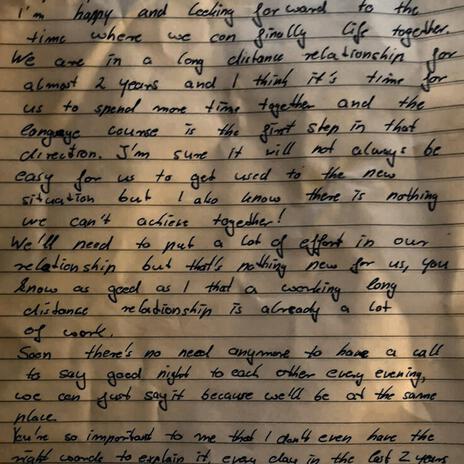 I'm happy and looking forward to the
time where we can finally life together.
We are in a long distance relationship for
almost 2 years and I think it's time for
us to spend more time together and the
language course is the first step in that
direction. I'm sure it will not always be
easy for us to get used to the new
situation but I also know there is nothing
we can't achieve together!
We'll need to put a lot of effort in our
relationship but that's nothing new for us, you
know as good as I that a working long
distance relationship is already a lot
of work.
Soon there's no need anymore to have a call
to say good night to each other every evening,
we can just say it because we'll be at the same
place.
You're so important to me that I don't even have the
right words to explain it, every day in the last 2 years